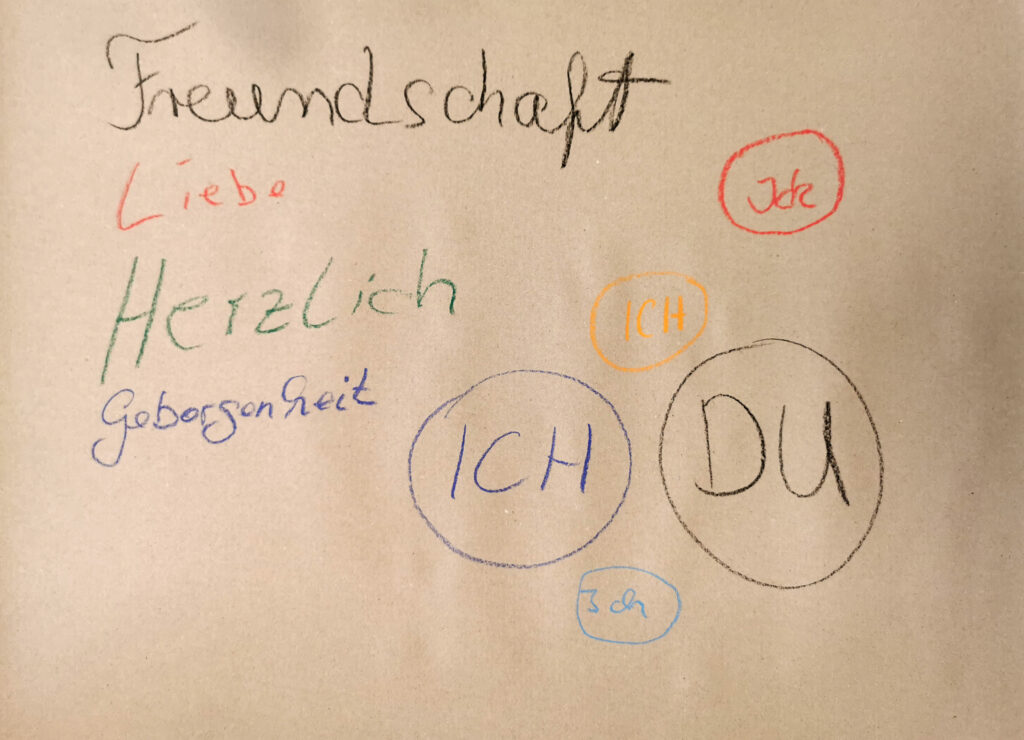 Freundschaft
Liebe
Ich
Herzlich
ICH
Geborgenheit
ICH
DU
Ich